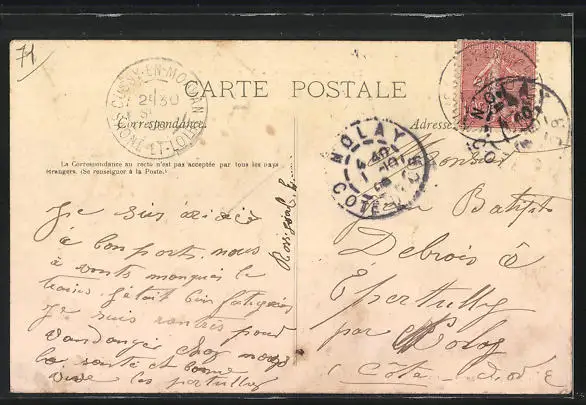 71
CARTE POSTALE
Correspondance.
Adresse
La Correspondance au recto n'est pas acceptée par tous les pays
étrangers. (Se renseigner à la Poste.)
CUSSY-EN-MORVAN
SAONE-ET-LOIRE
NOLAY
COTE-D'OR
Je suis arrivé
à bon port. nous
avons manqué le
train. j'était bien fatiguée
Je suis rentrés pour
vandanger chez nous
la santé et bonne
vive les pertuilly
Monsieur
Batiste
Debrois à
Épertully
par Nolay
Cote d'Or